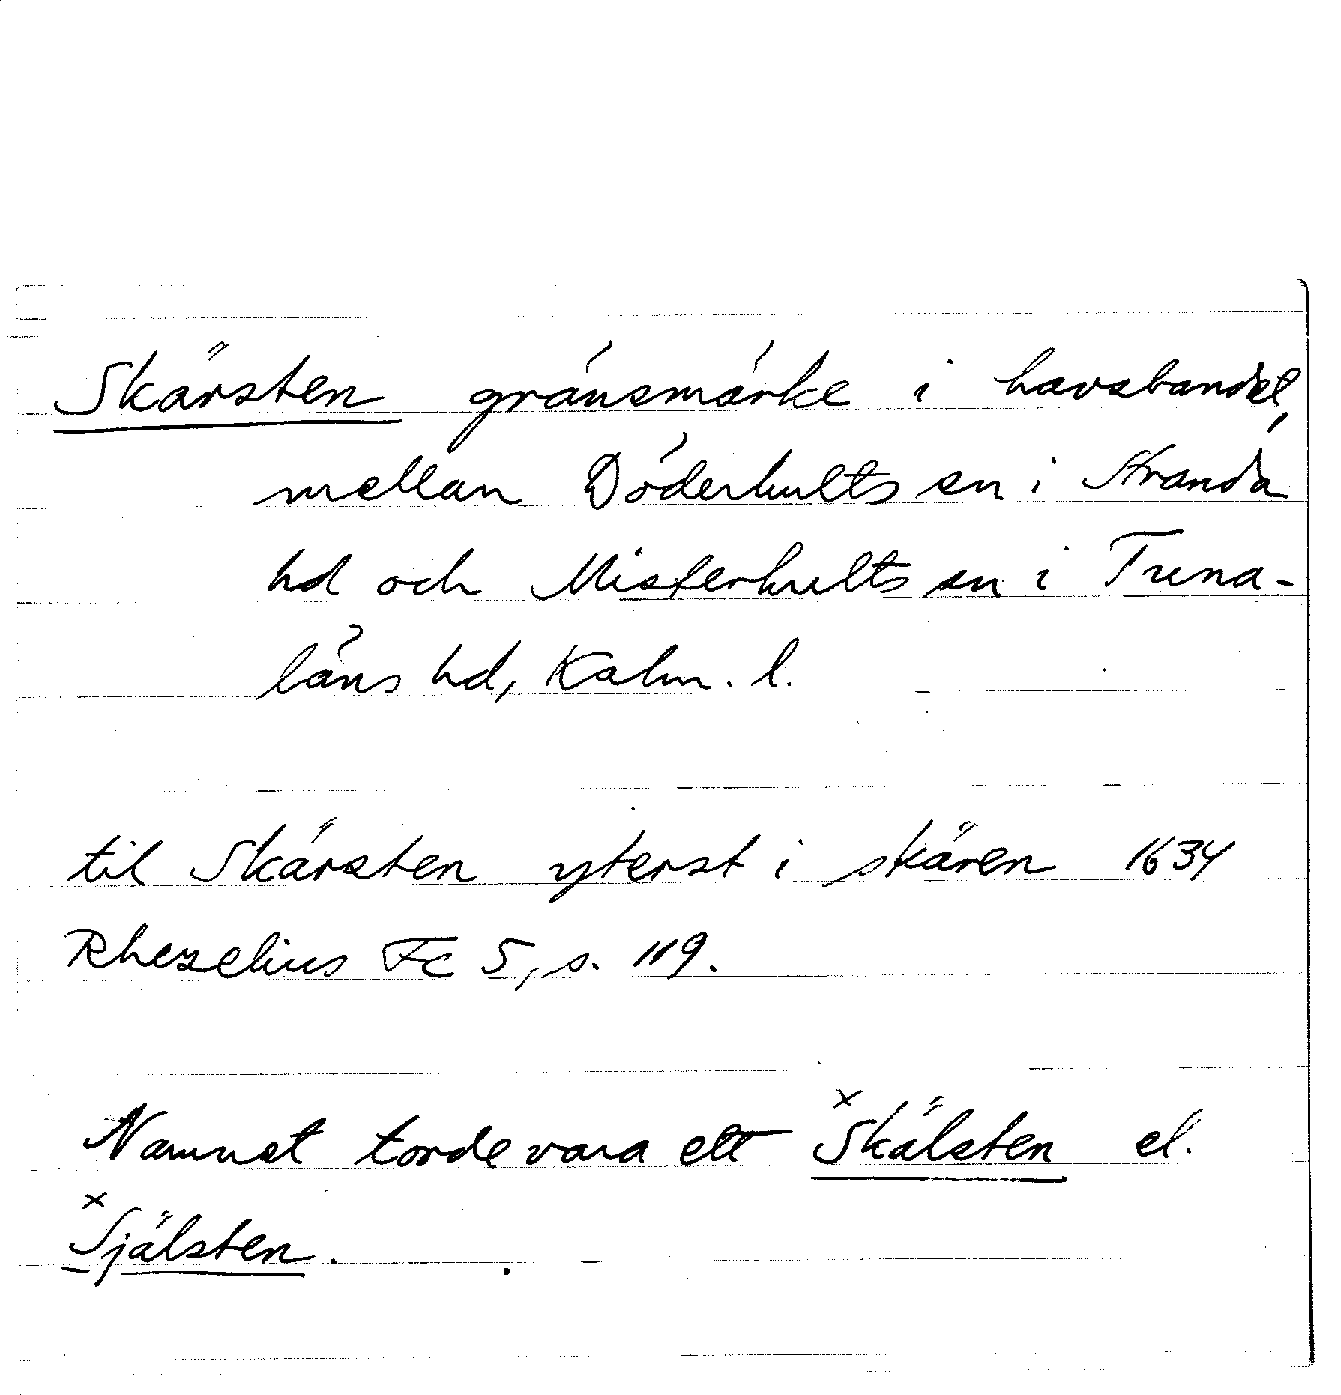 Skärsten gränsmärke i havsbandet,
mellan Döderhults sn i Stranda
hd och Misterhults sn i Tuna-
läns hd, Kalm. l.
til Skärsten yterst i skären 1634
Rhezelius Fc 5, s. 119.
Namnet torde vara ett ˣSkälsten el.
ˣSjälsten.